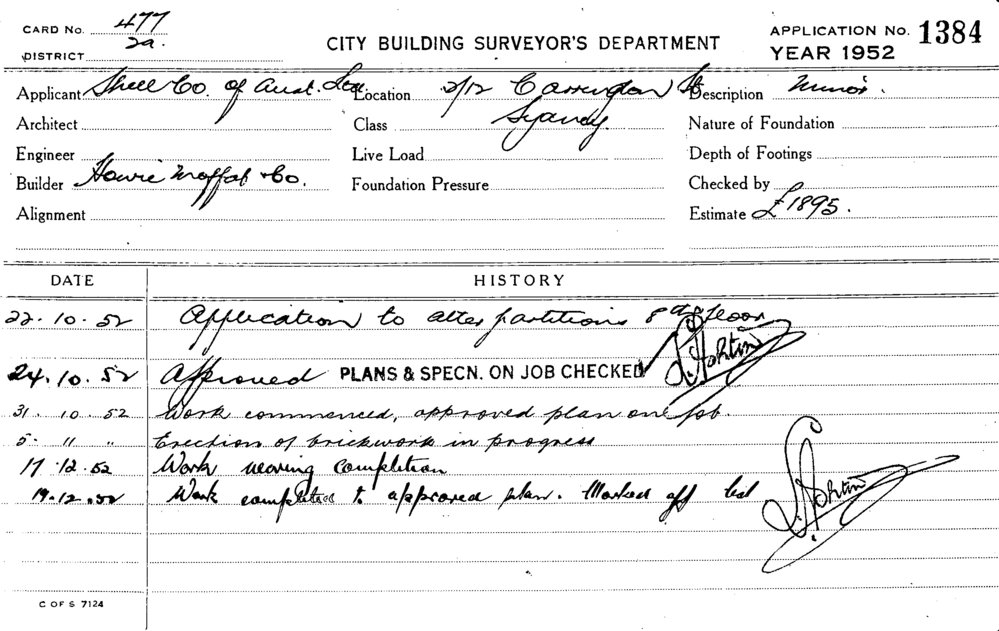 CARD No. 477
DISTRICT 2a.
CITY BUILDING SURVEYOR'S DEPARTMENT
APPLICATION No. 1384
YEAR 1952
Applicant Shell Co. of Aust. Ltd. Location 2/12 Carrington St Description Minor.
Architect Class Sydney. Nature of Foundation
Engineer Live Load Depth of Footings
Builder Howie Moffat & Co. Foundation Pressure Checked by
Alignment Estimate £1895.
DATE HISTORY
22.10.52 Application to alter partitions 8th floor
24.10.52 Approved PLANS & SPECN. ON JOB CHECKED
31.10.52 Work commenced, approved plan on job.
5. 11 " Erection of brickwork in progress
17.12.52 Work nearing completion
19.12.52 Work completed to approved plan. Marked off list
C OF S 7124